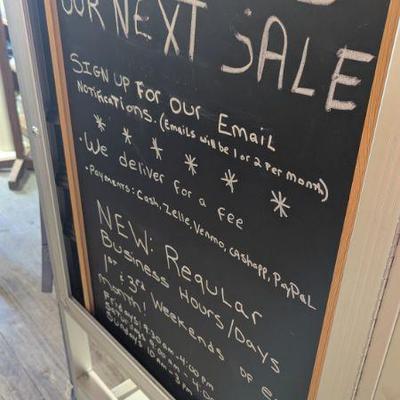 OUR NEXT SALE
SIGN UP FOR OUR EMAIL
NOTIFICATIONS. (EMAILS WILL BE 1 OR 2 PER MONTH)
* * * * * *
• We deliver for a fee
• Payments: Cash, Zelle, Venmo, cashapp, PayPal
NEW: Regular
Business Hours/Days
1st & 3rd Weekends of
Month!
Fridays 9:30 am - 4:00 pm